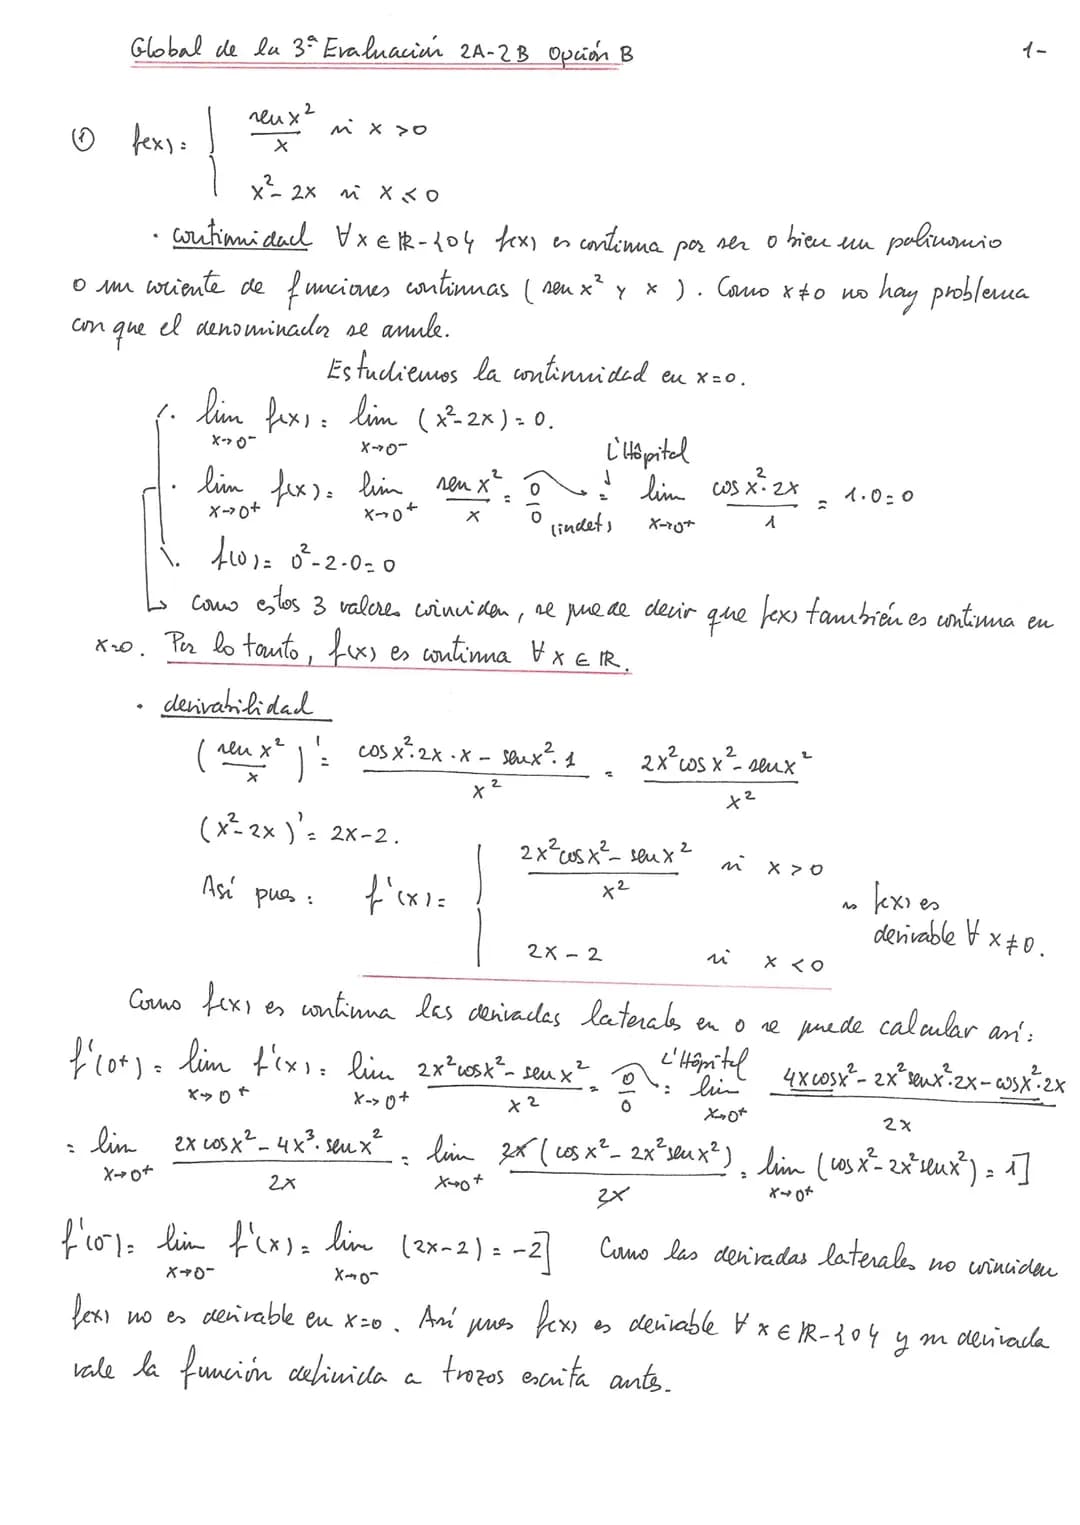 Global de la 3ª Evaluación 2A-2B Opción B 1-
① f(x) = { sen x² / x si x > 0
x² - 2x si x ≤ 0
· continuidad ∀x ∈ ℝ-{0} f(x) es continua por ser o bien un polinomio
o un cociente de funciones continuas (sen x² y x). Como x ≠ 0 no hay problema
con que el denominador se anule.
Estudiemos la continuidad en x=0.
· lim x→0⁻ f(x) = lim x→0⁻ (x²-2x) = 0.
· lim x→0⁺ f(x) = lim x→0⁺ sen x² / x = 0/0 (indet) = L'Hôpital lim x→0⁺ cos x²·2x / 1 = 1·0 = 0
· f(0) = 0²-2·0 = 0
↳ Como estos 3 valores coinciden, se puede decir que f(x) también es continua en
x=0. Por lo tanto, f(x) es continua ∀x ∈ ℝ.
· derivabilidad
(sen x² / x)' = cos x²·2x·x - sen x²·1 / x² = 2x² cos x² - sen x² / x²
(x²-2x)' = 2x-2.
Así pues: f'(x) = { 2x² cos x² - sen x² / x² si x > 0
2x - 2 si x < 0
→ f(x) es
derivable ∀ x≠0.
Como f(x) es continua las derivadas laterales en 0 se puede calcular así:
f'(0⁺) = lim x→0⁺ f'(x) = lim x→0⁺ 2x² cos x² - sen x² / x² = 0/0 = L'Hôpital lim x→0⁺ 4x cos x² - 2x² sen x²·2x - cos x²·2x / 2x
= lim x→0⁺ 2x cos x² - 4x³·sen x² / 2x = lim x→0⁺ 2x (cos x² - 2x² sen x²) / 2x = lim x→0⁺ (cos x² - 2x² sen x²) = 1]
f'(0⁻) = lim x→0⁻ f'(x) = lim x→0⁻ (2x-2) = -2] Como las derivadas laterales no coinciden
f(x) no es derivable en x=0. Así pues f(x) es derivable ∀ x ∈ ℝ-{0} y su derivada
vale la función definida a trozos escrita antes.